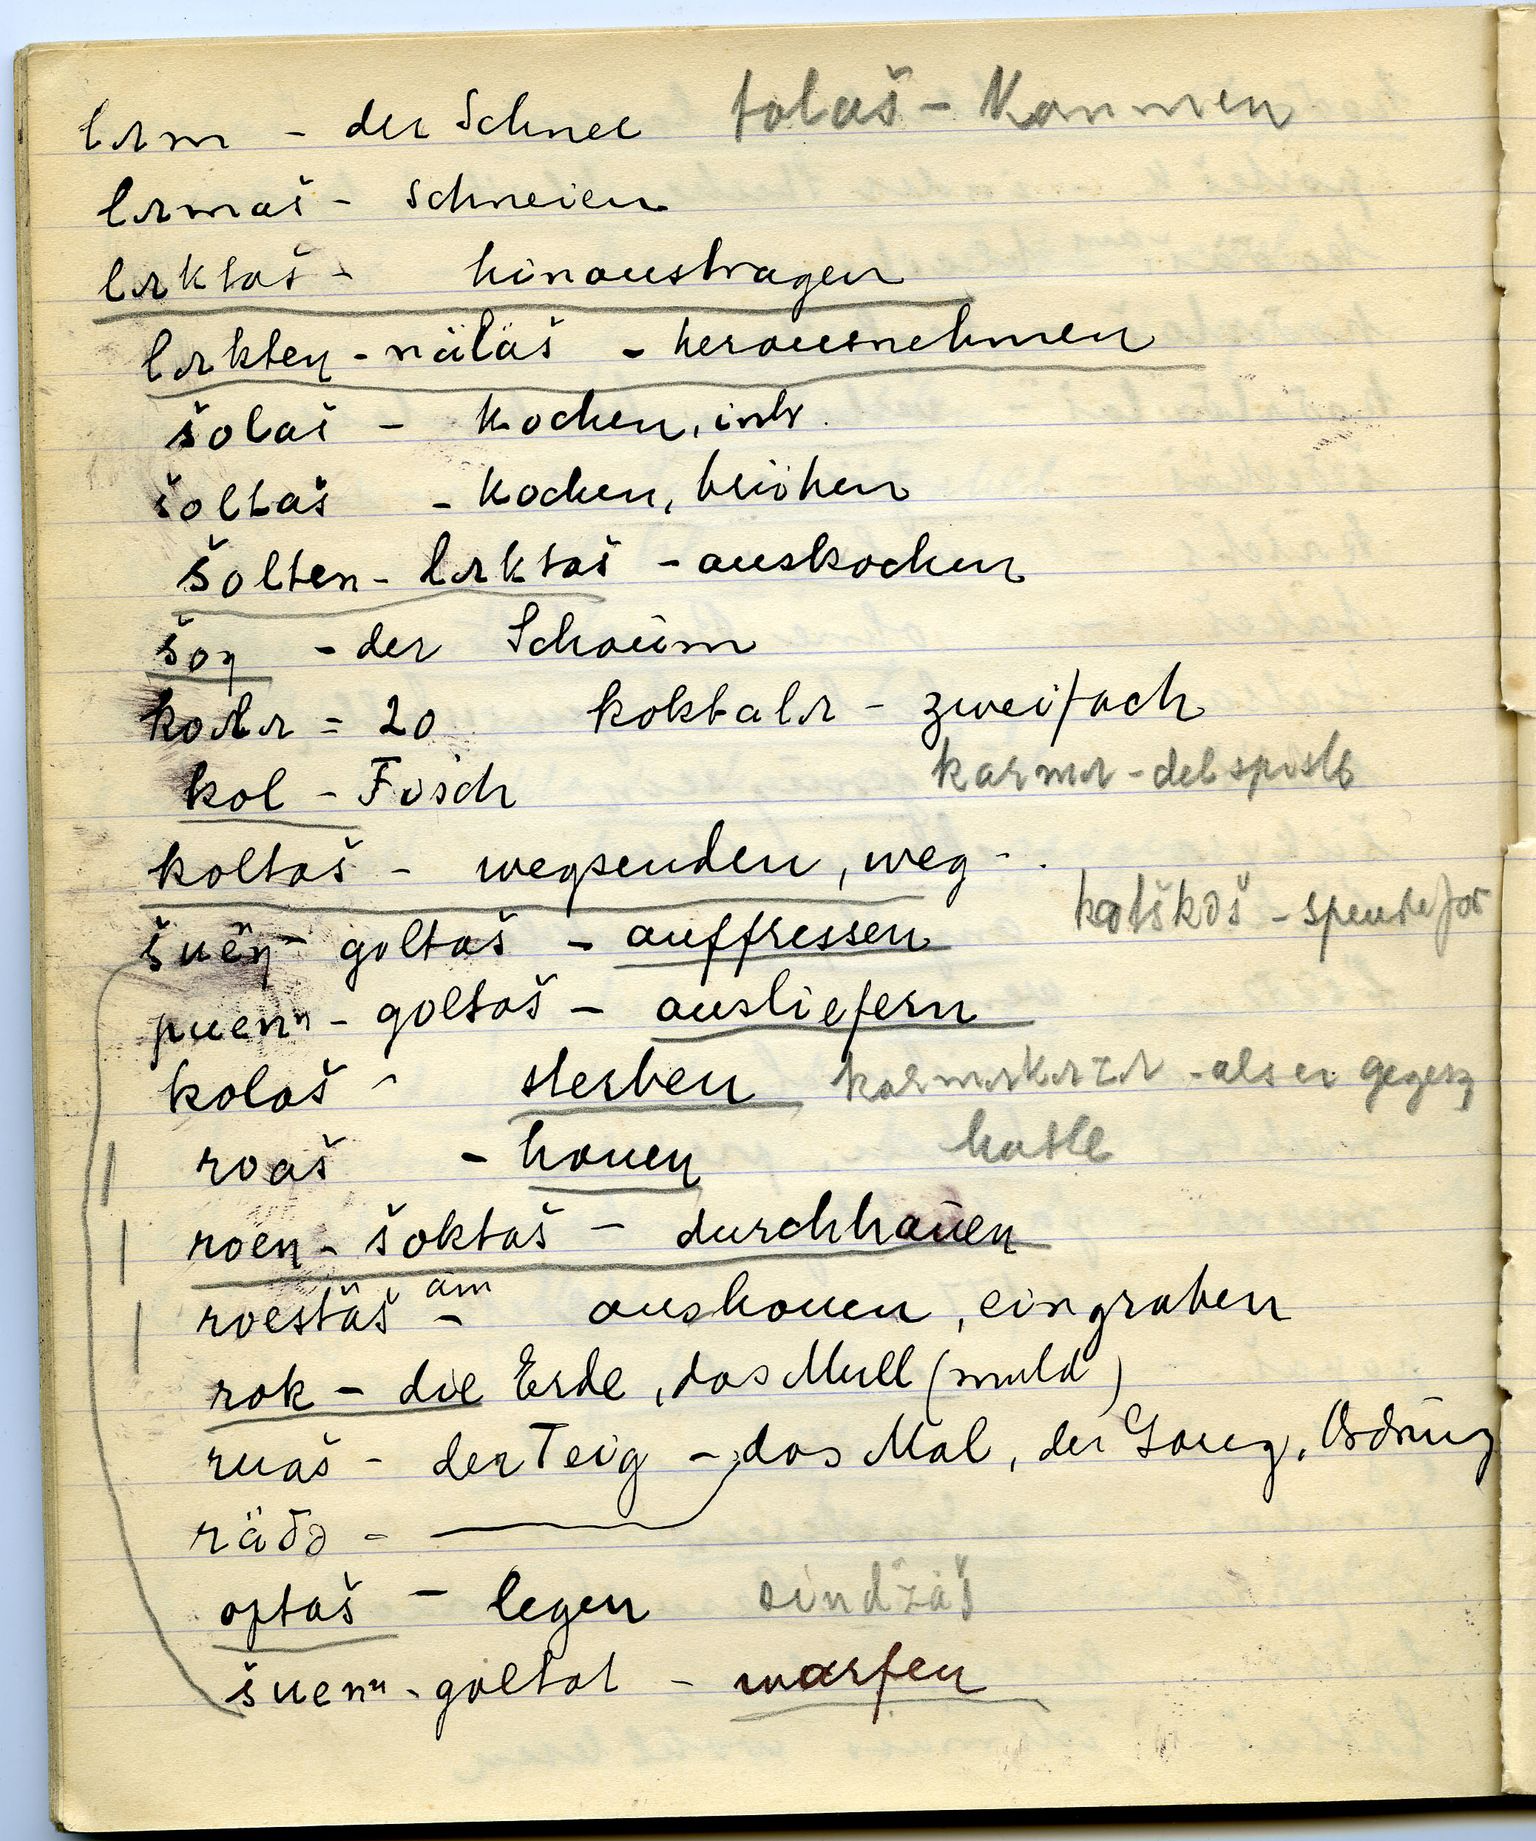 lrm - der Schnee tolaš - Kommen
lrmaš - schneien
lrktaš - hinaustragen
lrkten - näläš - herausnehmen
šolaš - kochen, intr.
šoltaš - kochen, brühen
šolten - lrktaš - auskochen
šoŋ - der Schaum
kolr = 20 koktalr - zweifach
karmr -
kol - Fisch
koltaš - wegsenden, weg - .
šuëŋ - goltaš - auffressen
puenn - goltaš - ausliefern
kolaš - sterben als er
hatte
roaš - hauen
roen - šoktaš - durchhauen
roestäš - äm aushauen, eingraben
rok - die Erde, das Mull (muld)
ruaš - der Teig - das Mal, der Gang, Ordnung
rädə -
optaš - legen sindžäš
šuenn - goltat - warfen